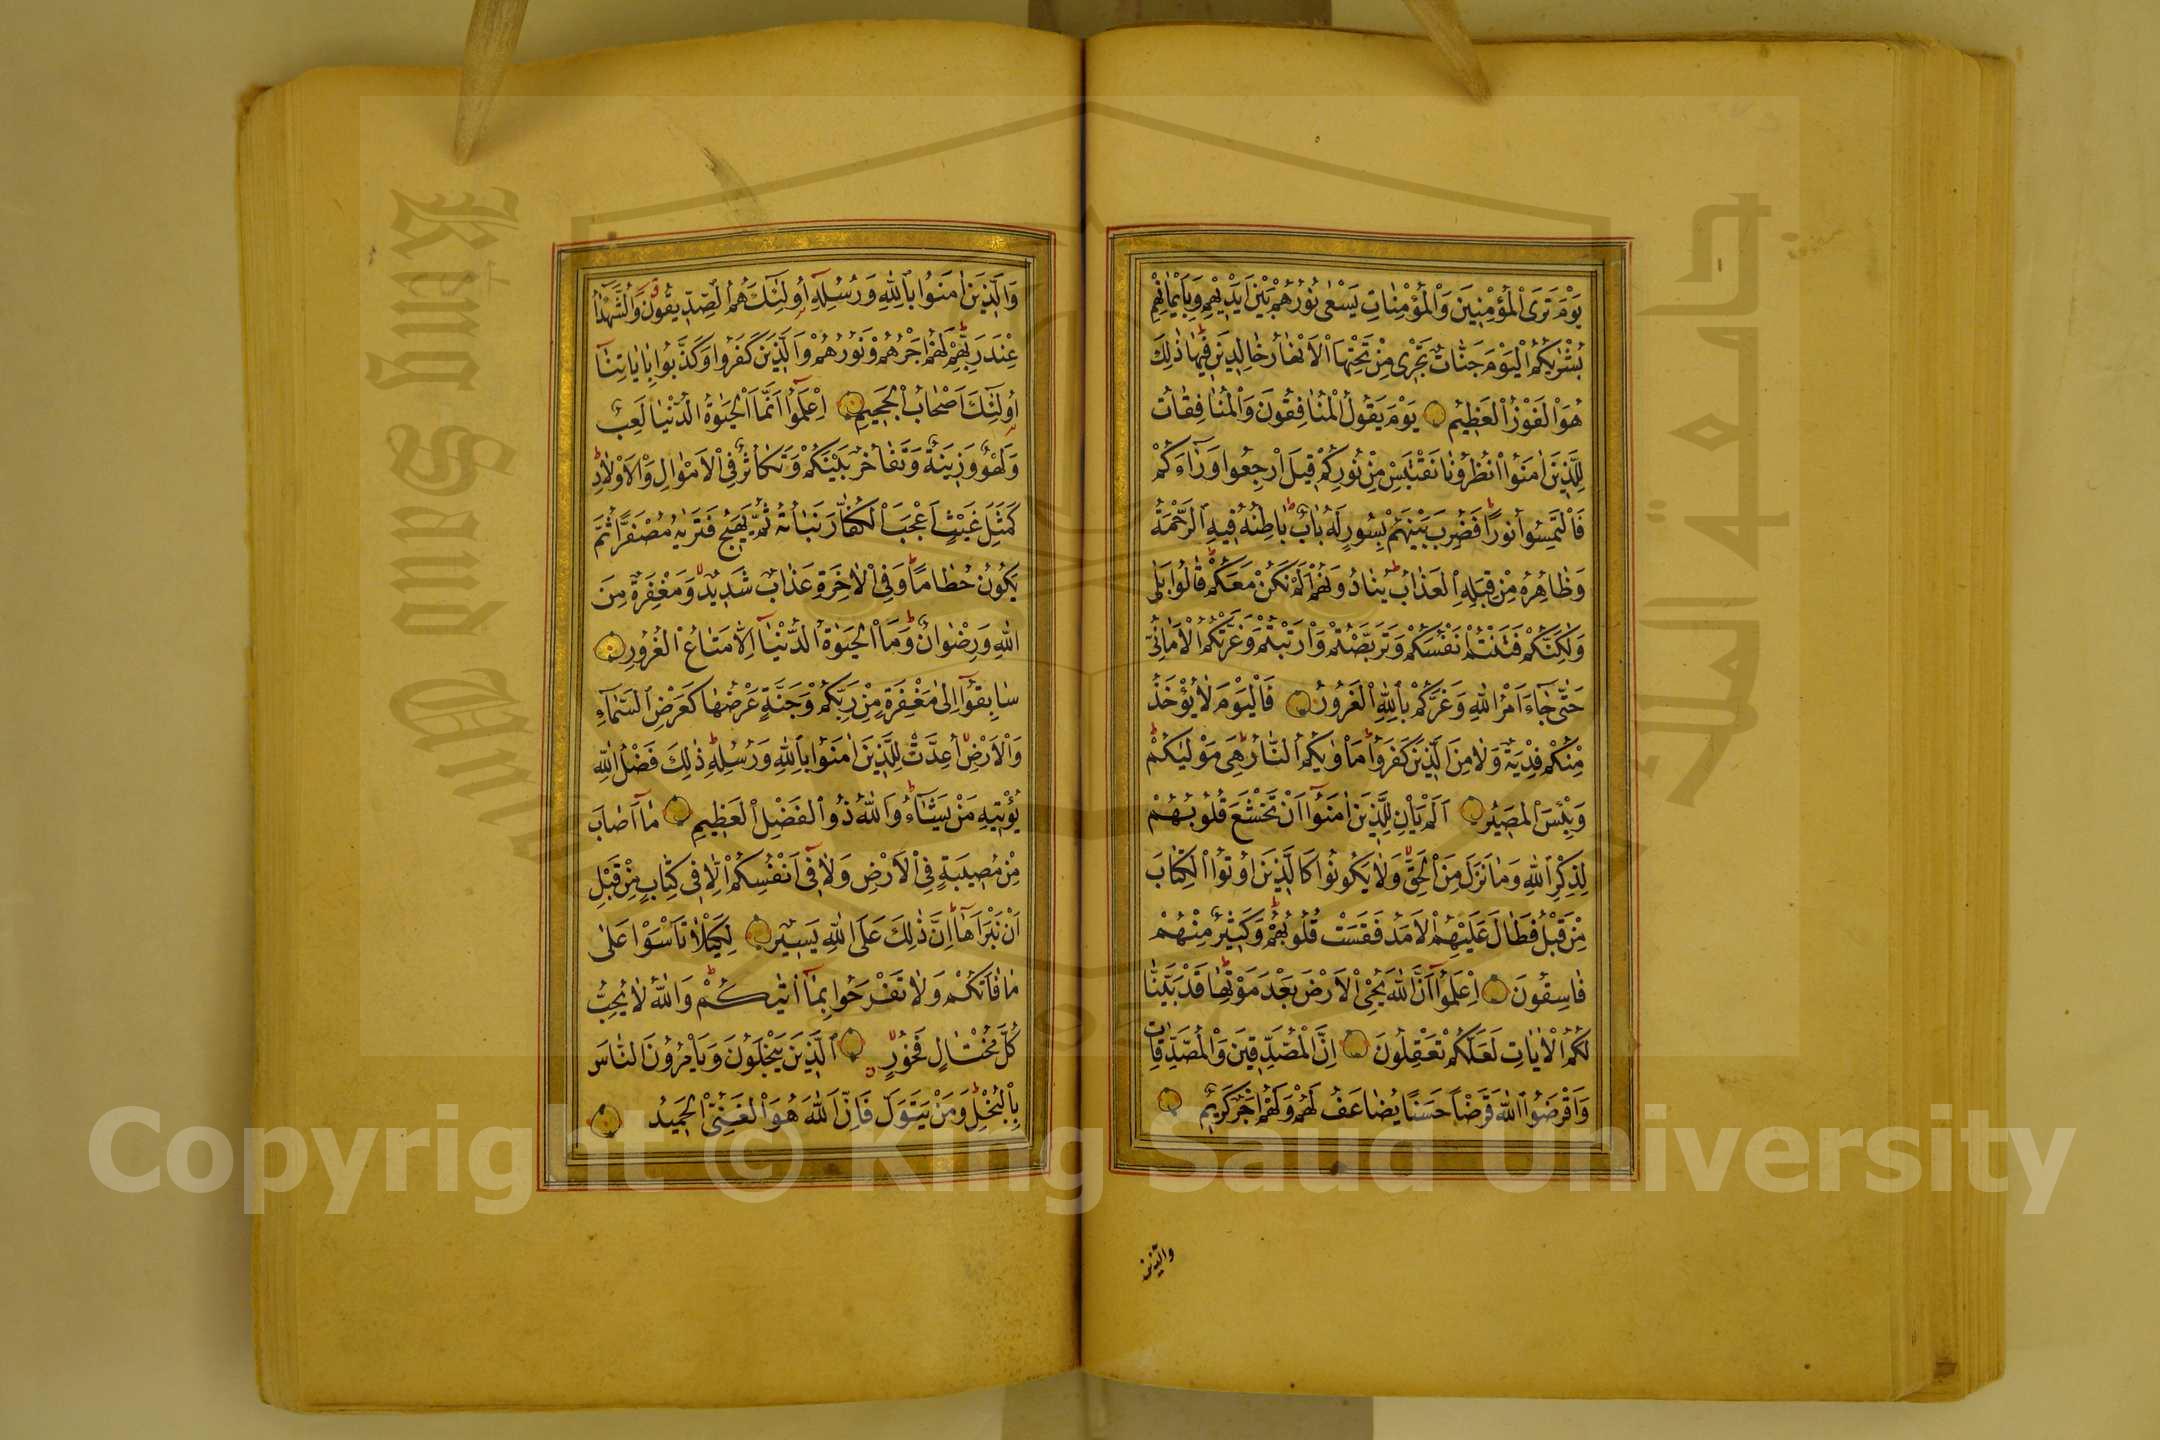 يَوْمَ تَرَى الْمُؤْمِنِينَ وَالْمُؤْمِنَاتِ يَسْعٰى نُورُهُمْ بَيْنَ اَيْدِيهِمْ وَبِاَيْمَانِهِمْ
بُشْرٰيكُمُ الْيَوْمَ جَنَّاتٌ تَجْرِى مِنْ تَحْتِهَا الْاَنْهَارُ خَالِدِينَ فِيهَا ذٰلِكَ
هُوَ الْفَوْزُ الْعَظِيمُ يَوْمَ يَقُولُ الْمُنَافِقُونَ وَالْمُنَافِقَاتُ
لِلَّذِينَ اٰمَنُوا انْظُرُونَا نَقْتَبِسْ مِنْ نُورِكُمْ قِيلَ ارْجِعُوا وَرَاءَكُمْ
فَالْتَمِسُوا نُورًا فَضُرِبَ بَيْنَهُمْ بِسُورٍ لَهُ بَابٌ بَاطِنُهُ فِيهِ الرَّحْمَةُ
وَظَاهِرُهُ مِنْ قِبَلِهِ الْعَذَابُ يُنَادُونَهُمْ اَلَمْ نَكُنْ مَعَكُمْ قَالُوا بَلٰى
وَلٰكِنَّكُمْ فَتَنْتُمْ اَنْفُسَكُمْ وَتَرَبَّصْتُمْ وَارْتَبْتُمْ وَغَرَّتْكُمُ الْاَمَانِىُّ
حَتّٰى جَاءَ اَمْرُ اللّٰهِ وَغَرَّكُمْ بِاللّٰهِ الْغَرُورُ فَالْيَوْمَ لَا يُؤْخَذُ
مِنْكُمْ فِدْيَةٌ وَلَا مِنَ الَّذِينَ كَفَرُوا مَاْوٰيكُمُ النَّارُ هِىَ مَوْلٰيكُمْ
وَبِئْسَ الْمَصِيرُ اَلَمْ يَاْنِ لِلَّذِينَ اٰمَنُوا اَنْ تَخْشَعَ قُلُوبُهُمْ
لِذِكْرِ اللّٰهِ وَمَا نَزَلَ مِنَ الْحَقِّ وَلَا يَكُونُوا كَالَّذِينَ اُوتُوا الْكِتَابَ
مِنْ قَبْلُ فَطَالَ عَلَيْهِمُ الْاَمَدُ فَقَسَتْ قُلُوبُهُمْ وَكَثِيرٌ مِنْهُمْ
فَاسِقُونَ اِعْلَمُوا اَنَّ اللّٰهَ يُحْيِى الْاَرْضَ بَعْدَ مَوْتِهَا قَدْ بَيَّنَّا
لَكُمُ الْاٰيَاتِ لَعَلَّكُمْ تَعْقِلُونَ اِنَّ الْمُصَّدِّقِينَ وَالْمُصَّدِّقَاتِ
وَاَقْرَضُوا اللّٰهَ قَرْضًا حَسَنًا يُضَاعَفُ لَهُمْ وَلَهُمْ اَجْرٌ كَرِيمٌ
والذين
وَالَّذِينَ اٰمَنُوا بِاللّٰهِ وَرُسُلِهِ اُولٰئِكَ هُمُ الصِّدِّيقُونَ وَالشُّهَدَاءُ
عِنْدَ رَبِّهِمْ لَهُمْ اَجْرُهُمْ وَنُورُهُمْ وَالَّذِينَ كَفَرُوا وَكَذَّبُوا بِاٰيَاتِنَا
اُولٰئِكَ اَصْحَابُ الْجَحِيمِ اِعْلَمُوا اَنَّمَا الْحَيٰوةُ الدُّنْيَا لَعِبٌ
وَلَهْوٌ وَزِينَةٌ وَتَفَاخُرٌ بَيْنَكُمْ وَتَكَاثُرٌ فِى الْاَمْوَالِ وَالْاَوْلَادِ
كَمَثَلِ غَيْثٍ اَعْجَبَ الْكُفَّارَ نَبَاتُهُ ثُمَّ يَهِيجُ فَتَرٰيهُ مُصْفَرًّا ثُمَّ
يَكُونُ حُطَامًا وَفِى الْاٰخِرَةِ عَذَابٌ شَدِيدٌ وَمَغْفِرَةٌ مِنَ
اللّٰهِ وَرِضْوَانٌ وَمَا الْحَيٰوةُ الدُّنْيَا اِلَّا مَتَاعُ الْغُرُورِ
سَابِقُوا اِلٰى مَغْفِرَةٍ مِنْ رَبِّكُمْ وَجَنَّةٍ عَرْضُهَا كَعَرْضِ السَّمَاءِ
وَالْاَرْضِ اُعِدَّتْ لِلَّذِينَ اٰمَنُوا بِاللّٰهِ وَرُسُلِهِ ذٰلِكَ فَضْلُ اللّٰهِ
يُؤْتِيهِ مَنْ يَشَاءُ وَاللّٰهُ ذُو الْفَضْلِ الْعَظِيمِ مَا اَصَابَ
مِنْ مُصِيبَةٍ فِى الْاَرْضِ وَلَا فِى اَنْفُسِكُمْ اِلَّا فِى كِتَابٍ مِنْ قَبْلِ
اَنْ نَبْرَاَهَا اِنَّ ذٰلِكَ عَلَى اللّٰهِ يَسِيرٌ لِكَيْلَا تَاْسَوْا عَلٰى
مَا فَاتَكُمْ وَلَا تَفْرَحُوا بِمَا اٰتٰيكُمْ وَاللّٰهُ لَا يُحِبُّ
كُلَّ مُخْتَالٍ فَخُورٍ اَلَّذِينَ يَبْخَلُونَ وَيَاْمُرُونَ النَّاسَ
بِالْبُخْلِ وَمَنْ يَتَوَلَّ فَاِنَّ اللّٰهَ هُوَ الْغَنِىُّ الْحَمِيدُ
King Saud University
جامعة الملك
Copyright © King Saud University